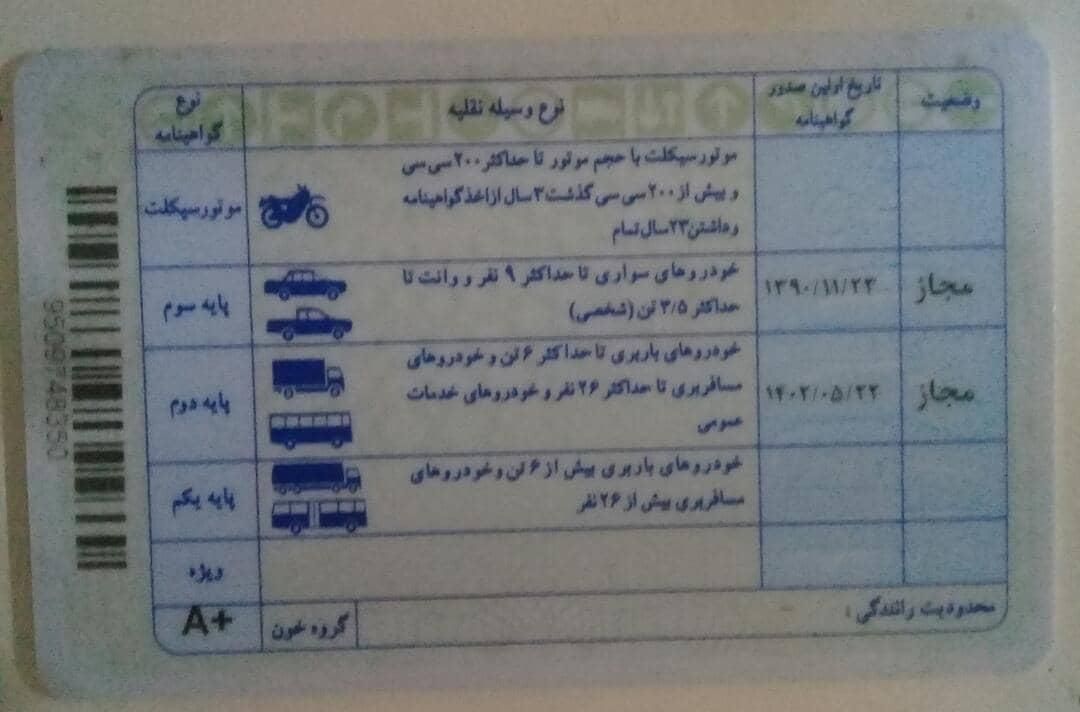 وضعیت
تاریخ اولین صدور
گواهینامه
نوع وسیله نقلیه
نوع
گواهینامه
موتورسیکلت با حجم موتور تا حداکثر ۲۰۰ سی سی
و بیش از ۲۰۰ سی سی گذشت ۳ سال از اخذ گواهینامه
و داشتن ۲۳ سال تمام
موتورسیکلت
مجاز
۱۳۹۰/۱۱/۲۳
خودروهای سواری تا حداکثر ۹ نفر و وانت تا
حداکثر ۳/۵ تن (شخصی)
پایه سوم
مجاز
۱۴۰۲/۰۵/۲۲
خودروهای باربری تا حداکثر ۶ تن و خودروهای
مسافربری تا حداکثر ۲۶ نفر و خودروهای خدمات
عمومی
پایه دوم
خودروهای باربری بیش از ۶ تن و خودروهای
مسافربری بیش از ۲۶ نفر
پایه یکم
ویژه
محدودیت رانندگی :
گروه خون
A+
9509748350